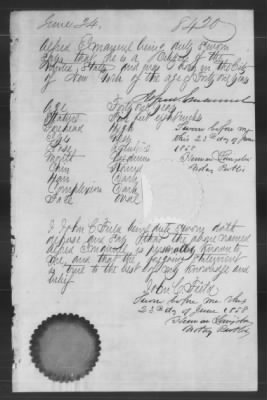 June 24. 8420
Alfred Emanuel being duly sworn
says that he is a Citizen of the
United States and was born in the City
of New York of the age of Forty one years
Alfred Emanuel
Age Forty one years
Stature Five feet eight inches
Forehead High
Eyes
Nose
Mouth Medium
Chin Round
Hair Dark
Complexion Dark
Face Oval
Sworn before me
this 23d day of June
1858
Notary Public
I John C. Field being duly sworn doth
depose and say that the above named
Alfred Emanuel is personally known to
me, and that the foregoing statement
is true to the best of my knowledge and
belief
John C. Field
Sworn before me this
23d day of June 1858
Notary Public